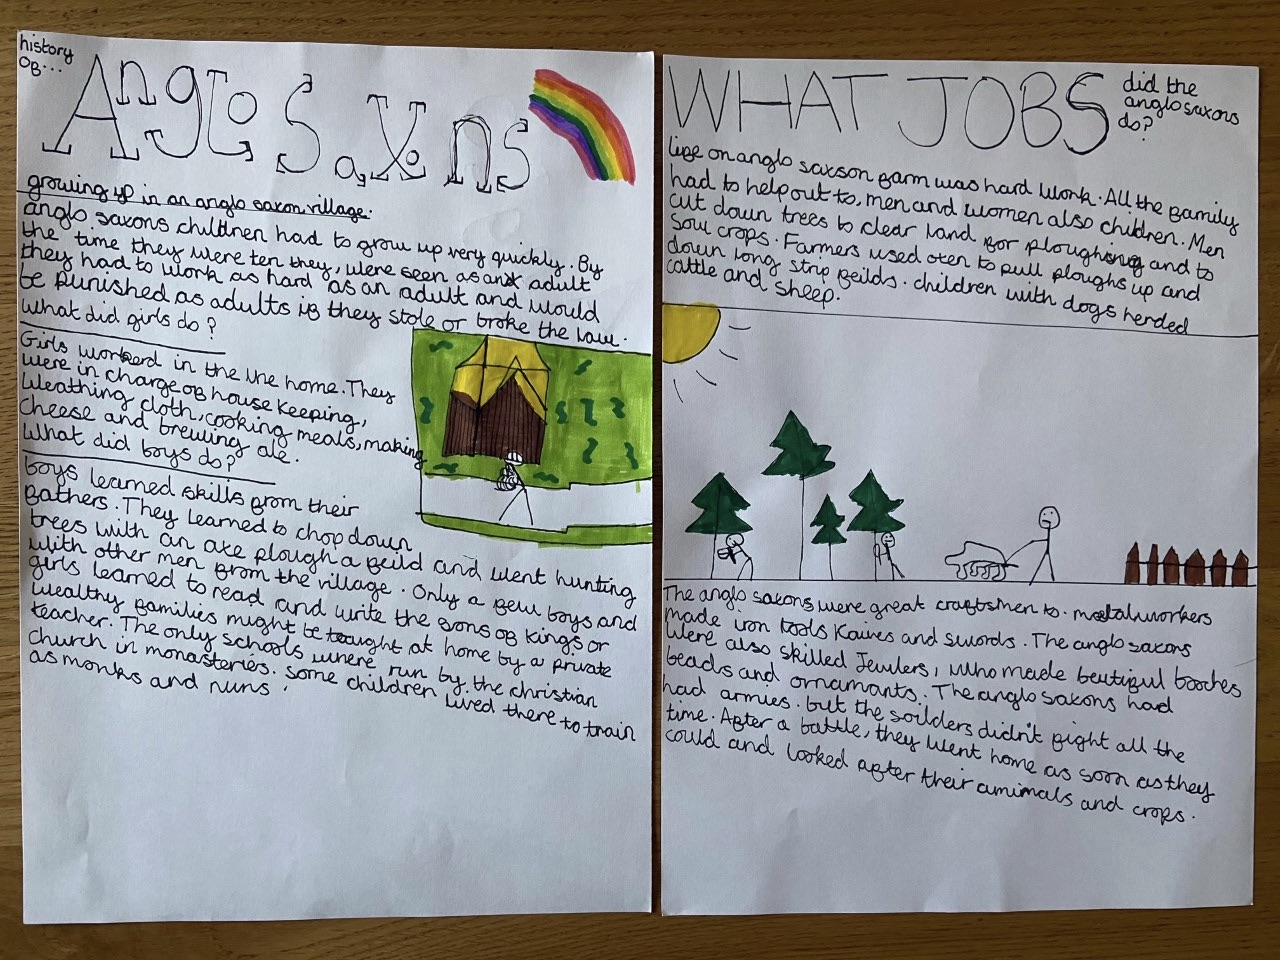 history
of...
Anglo Saxons
growing up in an anglo saxon village.
anglo saxons children had to grow up very quickly. By
the time they were ten they, were seen as an adult
they had to work as hard as an adult and would
be punished as adults if they stole or broke the law.
what did girls do?
Girls workerd in the the home. They
were in charge of house keeping,
weathing cloth, cooking meals, making
cheese and brewing ale.
What did boys do?
boys learned skills from their
fathers. They learned to chop down
trees with an axe plough a feild and went hunting
with other men from the village. Only a few boys and
girls learned to read and write the sons of kings or
wealthy families might be taught at home by a private
teacher. The only schools where run by the christian
church in monasteries. some children lived there to train
as monks and nuns.
WHAT JOBS did the
anglo saxons
do?
life on anglo saxson farm was hard work. All the family
had to help out to, men and women also children. Men
cut down trees to clear land for ploughing and to
sow crops. Farmers used oxen to pull ploughs up and
down long strip feilds. children with dogs herded
cattle and sheep.
The anglo saxons were great craftsmen to. metalworkers
made iron tools Knives and swords. The anglo saxons
were also skilled Jewlers, who made beutiful booches
beads and ornamants. The anglo saxons had
had armies. but the soilders didn't fight all the
time. After a battle, they went home as soon as they
could and looked after their amimals and crops.